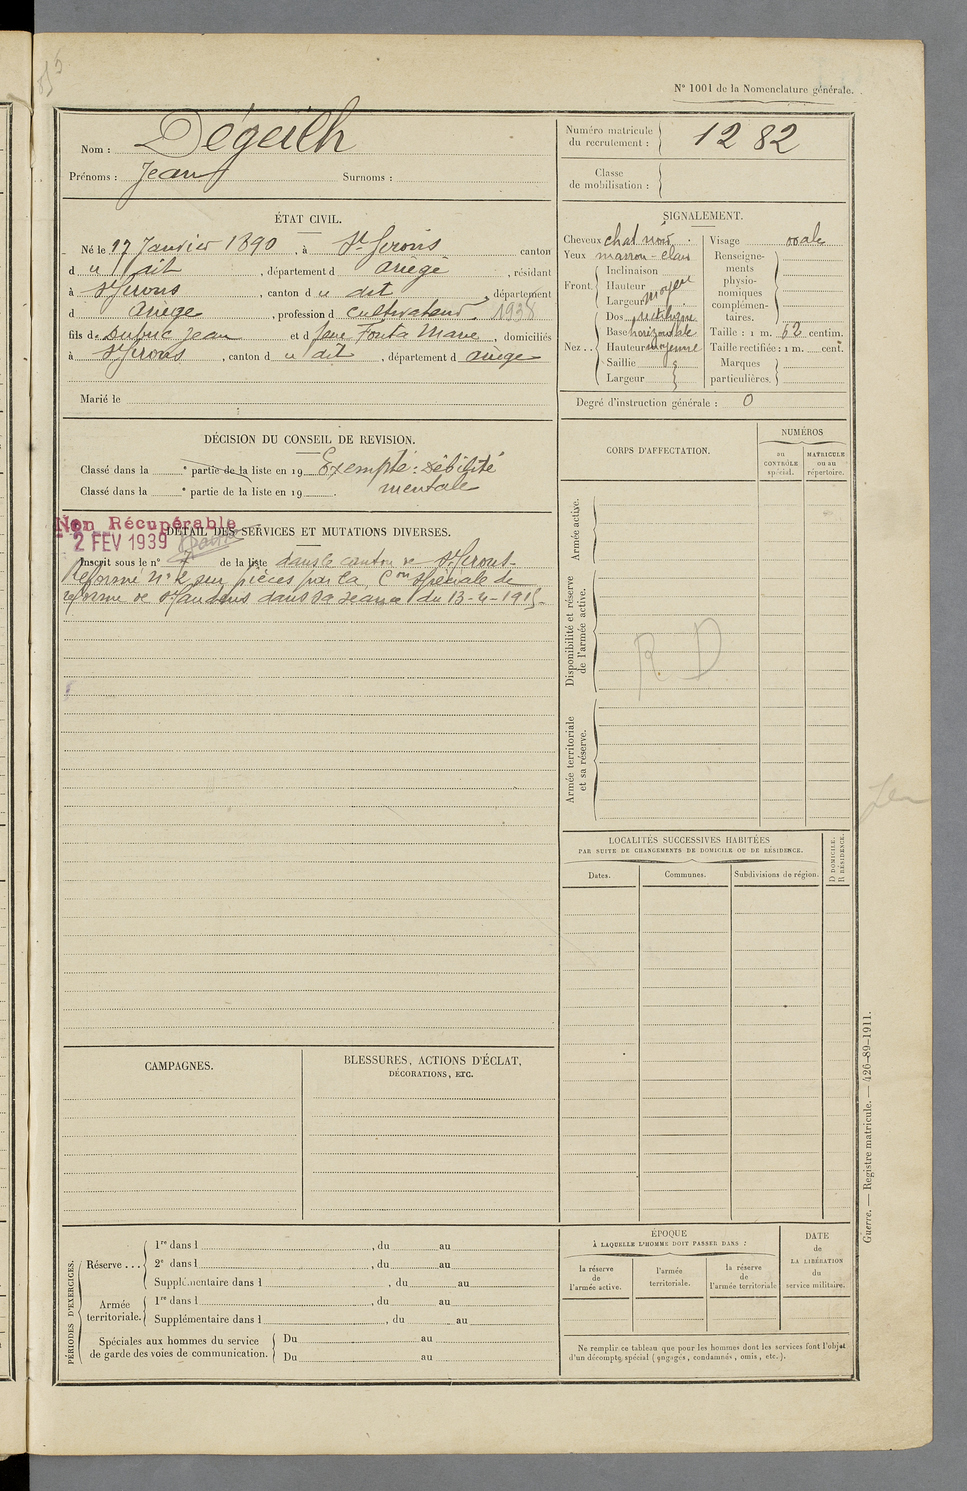 N° 1001 de la Nomenclature générale.
Nom : Dégeilh
Prénoms : Jean Surnoms :
Numéro matricule du recrutement : 1282
Classe de mobilisation :
ÉTAT CIVIL.
Né le 17 Janvier 1890, à St Girons canton
d u dit, département d Ariège, résidant
à St Girons, canton d u dit, département
d Ariège, profession d cultivateur. 1938
fils de Jean et d Marie, domiciliés
à St Girons, canton d u dit, département d Ariège
Marié le
SIGNALEMENT.
Cheveux chat noir.
Yeux marron-clair
Front. Inclinaison
Hauteur moyen
Largeur
Nez.. Dos rectiligne
Base horizontale
Hauteur moyenne
Saillie
Largeur
Visage ovale
Renseignements physionomiques complémentaires.
Taille : 1 m. 62 centim.
Taille rectifiée : 1 m. cent.
Marques particulières.
Degré d'instruction générale : 0
DÉCISION DU CONSEIL DE REVISION.
Classé dans la e partie de la liste en 19 Exempté : Débilité
Classé dans la e partie de la liste en 19 . mentale
Non Récupérable
2 FEV 1939
DÉTAIL DES SERVICES ET MUTATIONS DIVERSES.
Inscrit sous le n° 7 de la liste dans le canton de St Girons.
Réformé N° 2 sur pièces par la Con spéciale de
réforme de St Gaudens dans sa séance du 13-4-1915.
CORPS D'AFFECTATION.
NUMÉROS
au CONTRÔLE spécial.
MATRICULE ou au répertoire.
Armée active.
Disponibilité et réserve de l'armée active.
R D
Armée territoriale et sa réserve.
LOCALITÉS SUCCESSIVES HABITÉES
PAR SUITE DE CHANGEMENTS DE DOMICILE OU DE RÉSIDENCE.
Dates.
Communes.
Subdivisions de région.
D DOMICILE.
R RÉSIDENCE.
CAMPAGNES.
BLESSURES, ACTIONS D'ÉCLAT,
DÉCORATIONS, ETC.
PÉRIODES D'EXERCICES.
Réserve ... 1re dans l , du au
2e dans l , du au
Supplémentaire dans l , du au
Armée territoriale. 1re dans l , du au
Supplémentaire dans l , du au
Spéciales aux hommes du service de garde des voies de communication. Du au
Du au
ÉPOQUE
À LAQUELLE L'HOMME DOIT PASSER DANS :
la réserve de l'armée active.
l'armée territoriale.
la réserve de l'armée territoriale
DATE de LA LIBÉRATION du service militaire.
Ne remplir ce tableau que pour les hommes dont les services font l'objet
d'un décompte spécial (engagés, condamnés, omis, etc.).
Guerre. — Registre matricule. — 426-89-1911.